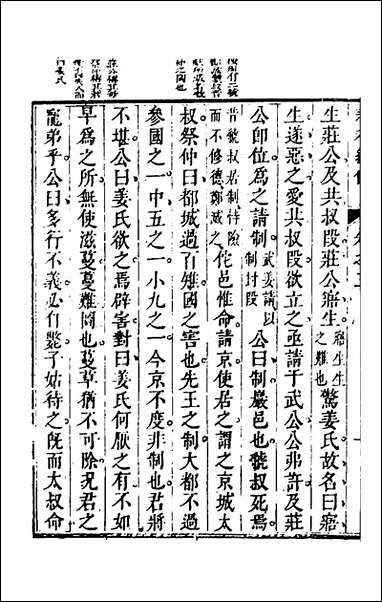 生莊公及共叔段莊公寤生寤生生之難也驚姜氏故名曰寤
生遂惡之愛共叔段欲立之亟請于武公公弗許及莊
公卽位爲之請制武姜請以制封段公曰制巖邑也虢叔死焉
昔虢叔君制恃險而不修德鄭滅之佗邑惟命請京使居之謂之京城太
叔祭仲曰都城過百雉國之害也先王之制大都不過
參國之一中五之一小九之一今京不度非制也君將
不堪公曰姜氏欲之焉辟害對曰姜氏何厭之有不如
早爲之所無使滋蔓蔓難圖也蔓草猶不可除况君之
寵弟乎公曰多行不義必自斃子姑待之既而太叔命